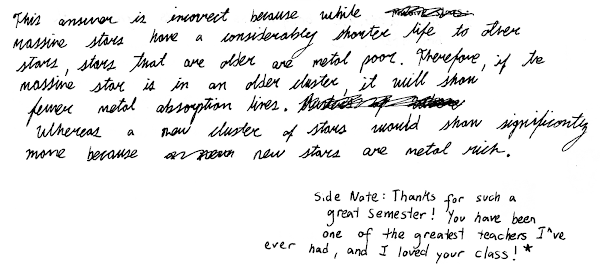 This answer is incorrect because while
massive stars have a considerably shorter life to other
stars, stars that are older are metal poor. Therefore, if the
massive star is in an older cluster, it will show
fewer metal absorption lines.
Whereas a new cluster of stars would show significantly
more because new stars are metal rich.
Side Note: Thanks for such a
great semester! You have been
one of the greatest teachers I've
ever had, and I loved your class!*